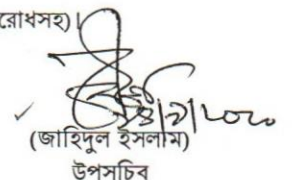 রোধসহ)।
(জাহিদুল ইসলাম)
উপসচিব